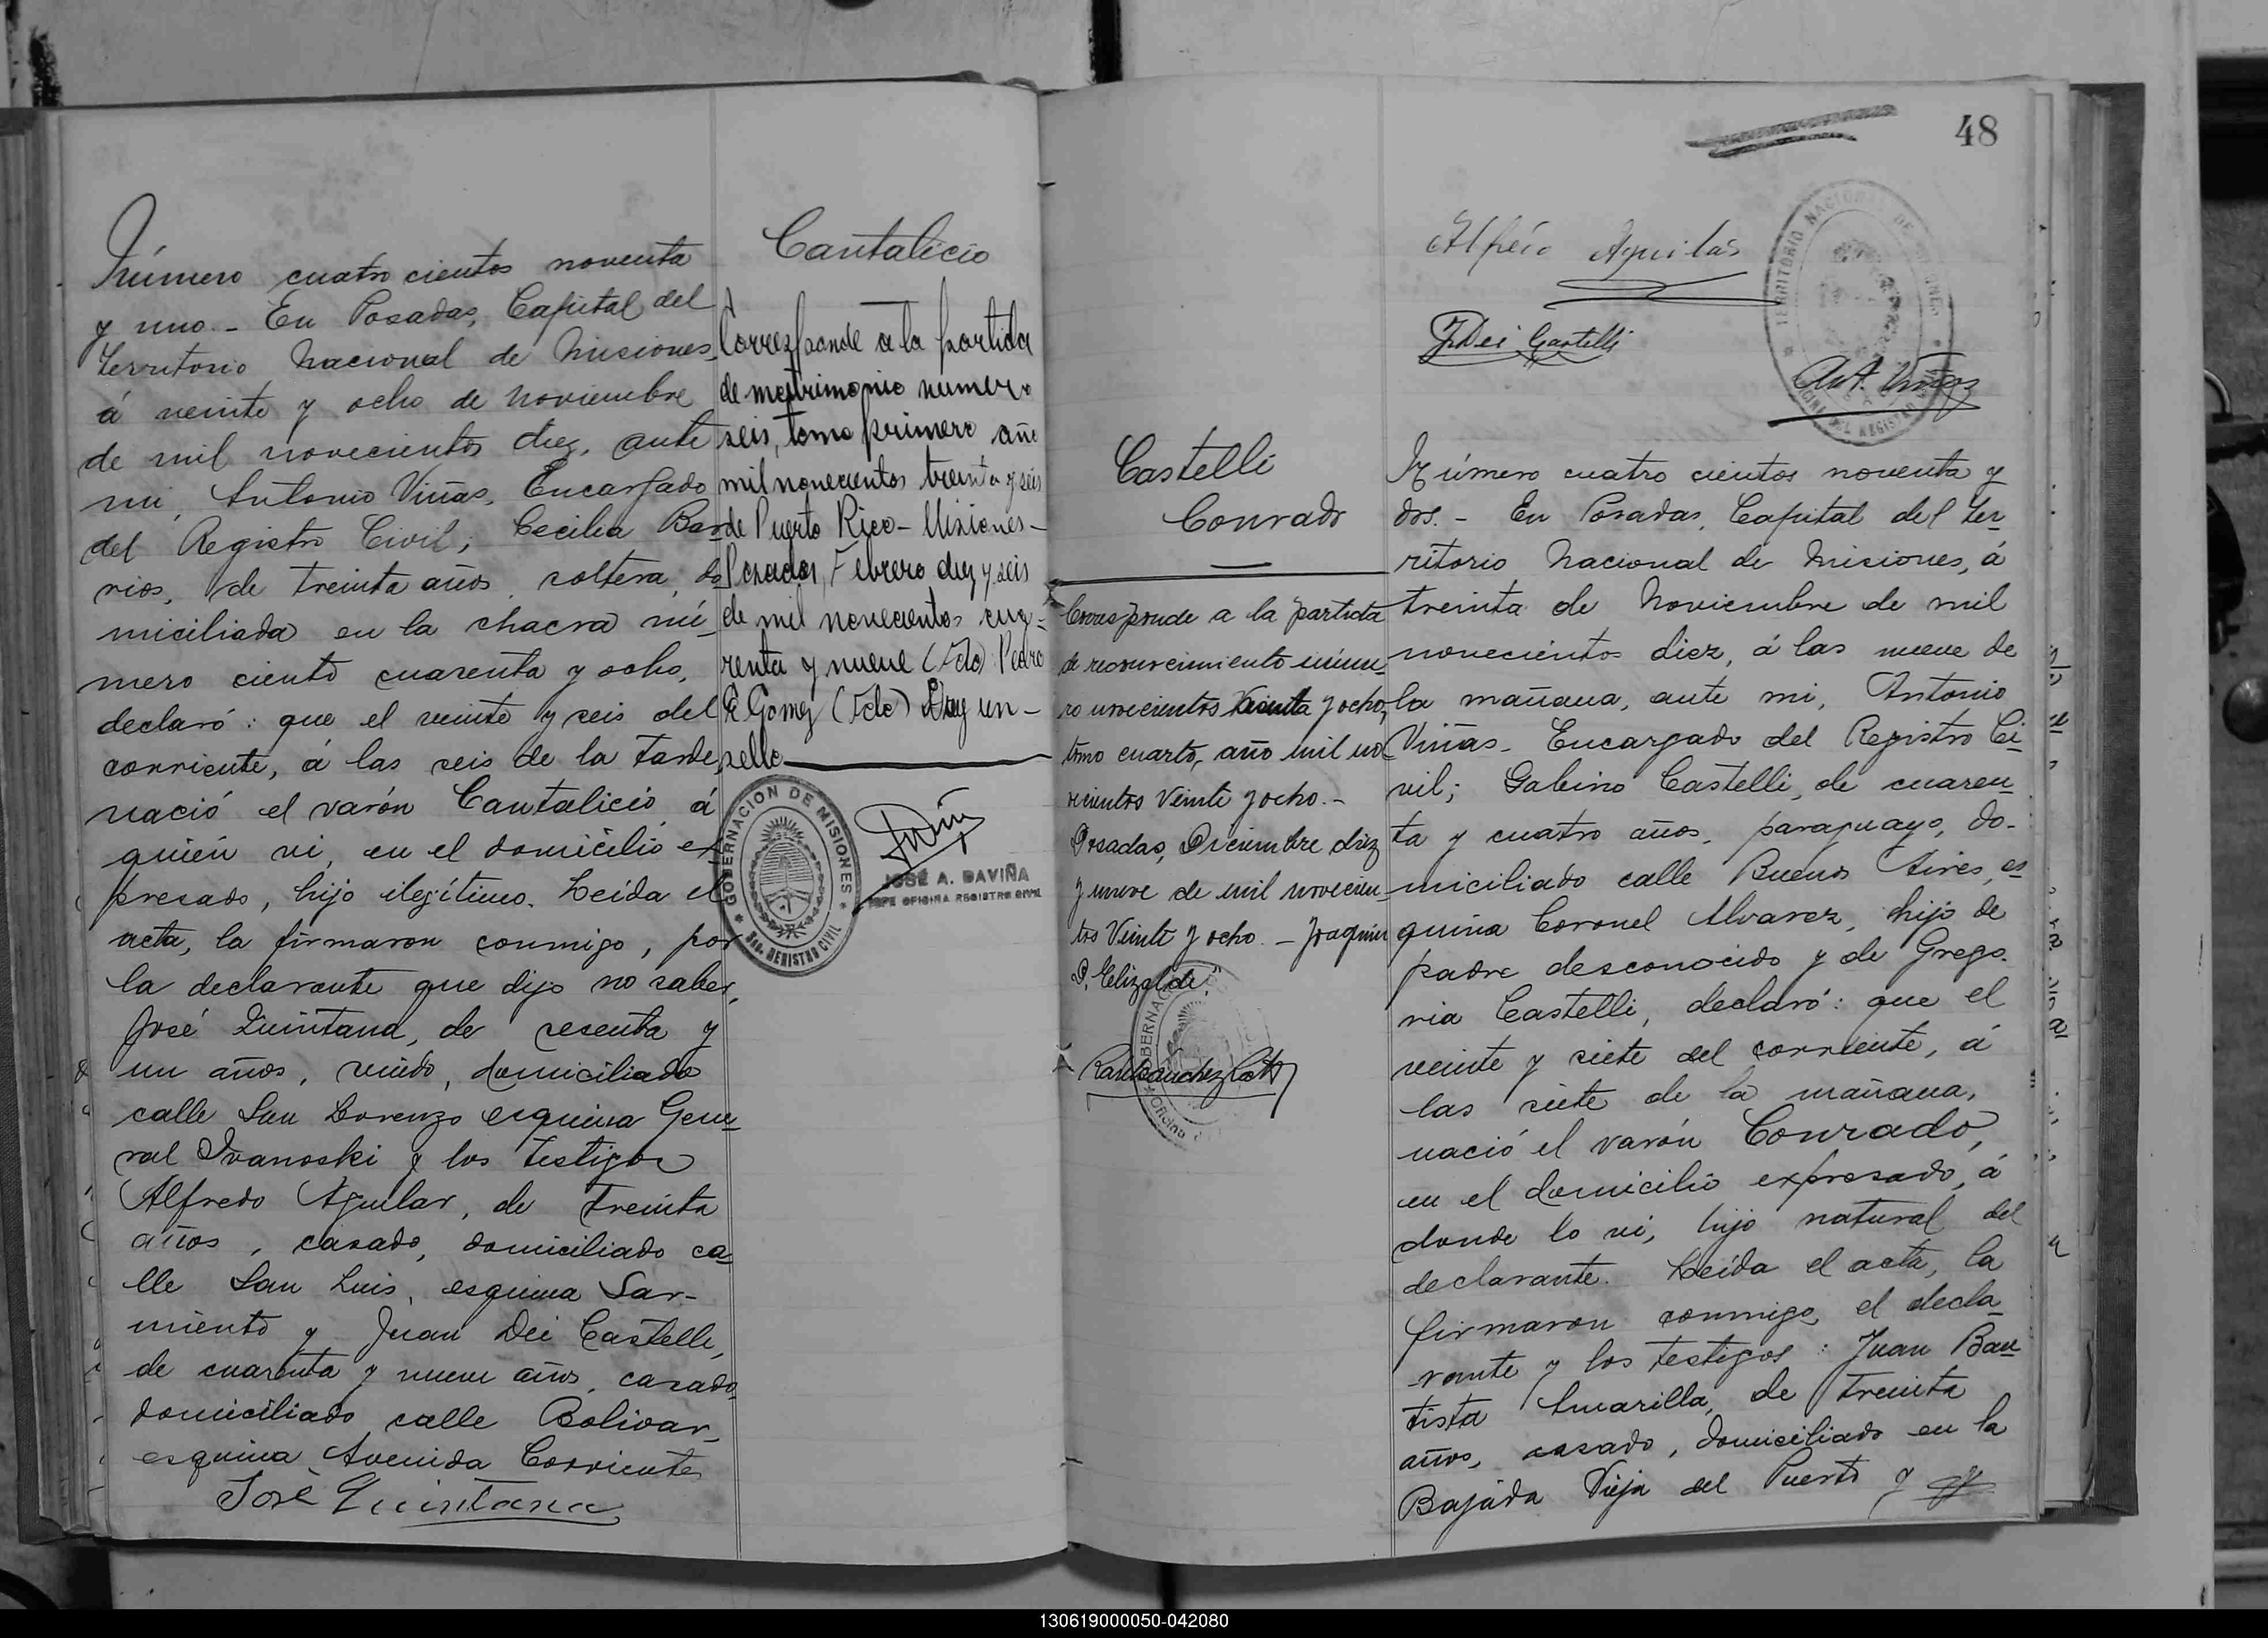 Número cuatro cientos noventa
y uno. - En Posadas, Capital del
Territorio Nacional de Misiones,
á veinte y ocho de Noviembre
de mil novecientos diez, ante
mi, Antonio Viñas, Encargado
del Registro Civil; Cecilia Bar-
rios, de treinta años, soltera, do
miciliada en la chacra nú-
mero ciento cuarenta y ocho,
declaró: que el veinte y seis del
corriente, á las seis de la tarde,
nació el varón Cantalicio, á
quién vi, en el domicilio ex
presado, hijo ilegítimo. Leída el
acta, la firmaron conmigo, por
la declarante que dijo no saber,
José Quintana, de sesenta y
un años, viudo, domiciliado
calle San Lorenzo esquina Gene-
ral Ivanoski y los testigos
Alfredo Aguilar, de treinta
años, casado, domiciliado ca-
lle San Luis, esquina Sar-
miento y Juan Dei Castelli,
de cuarenta y nueve años, casado,
domiciliado calle Bolivar,
esquina Avenida Corrientes
José Quintana
Cantalicio
Corresponde a la partida
de matrimonio numero
seis, tomo primero año
mil novecientos treinta y seis
de Puerto Rico - Misiones -
Posadas, Febrero diez y seis
de mil novecientos cua-
renta y nueve (Fdo) Pedro
E Gomez (Fdo) Hay un -
sello
GOBERNACION DE MISIONES
REGISTRO CIVIL
JOSÉ A. DAVIÑA
JEFE OFICINA REGISTRO CIVIL
48
Alfrédo Aguilar
J Dei Castelli
TERRITORIO NACIONAL DE MISIONES
OFICINA DEL REGISTRO CIVIL
Ant. Viñas
Castelli
Conrado
Corresponde a la partida
de reconocimiento núme-
ro novecientos Veinte y ocho,
tomo cuarto, año mil no-
vecientos Veinte y ocho. -
Posadas, Diciembre diez
y nueve de mil novecien-
tos Veinte y ocho. - Joaquin
P. Elizalde."
GOBERNACION
Oficina d
Número cuatro cientos noventa y
dos. - En Posadas, Capital del Ter-
ritorio Nacional de Misiones, á
treinta de Noviembre de mil
novecientos diez, á las nueve de
la mañana, ante mi, Antonio
Viñas, Encargado del Registro Ci-
vil; Gabino Castelli, de cuaren-
ta y cuatro años, paraguayo, do-
miciliado calle Buenos Aires, es-
quina Coronel Alvarez, hijo de
padre desconocido y de Grego-
ria Castelli, declaró: que el
veinte y siete del corriente, á
las siete de la mañana,
nació el varón Conrado,
en el domicilio expresado, á
donde lo vi, hijo natural del
declarante. Leída el acta, la
firmaron conmigo, el decla-
rante y los testigos: Juan Bau-
tista Amarilla, de treinta
años, casado, domiciliado en la
Bajada Vieja del Puerto y
130619000050-042080